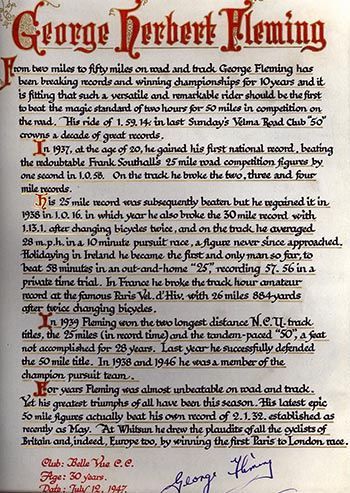 George Herbert Fleming
From two miles to fifty miles on road and track George Fleming has
been breaking records and winning championships for 10 years and it
is fitting that such a versatile and remarkable rider should be the first
to beat the magic standard of two hours for 50 miles in competition on
the road. His ride of 1. 59. 14. in last Sunday's Velma Road Club "50"
crowns a decade of great records.
In 1937, at the age of 20, he gained his first national record, beating
the redoubtable Frank Southall's 25 mile road competition figures by
one second in 1.0.58. On the track he broke the two, three and four
mile records.
His 25 mile record was subsequently beaten but he regained it in
1938 in 1.0.16. in which year he also broke the 30 mile record with
1.13.1. after changing bicycles twice, and on the track, he averaged
28 m.p.h. in a 10 minute pursuit race, a figure never since approached.
Holidaying in Ireland he became the first and only man so far, to
beat 58 minutes in an out-and-home "25", recording 57. 56 in a
private time trial. In France he broke the track hour amateur
record at the famous Paris Vel. d'Hiv, with 26 miles 884 yards
after twice changing bicycles.
In 1939 Fleming won the two longest distance N.C.U. track
titles, the 25 miles (in record time) and the tandem-paced "50", a feat
not accomplished for 28 years. Last year he successfully defended
the 50 mile title. In 1938 and 1946 he was a member of the
champion pursuit team.
For years Fleming was almost unbeatable on road and track.
Yet his greatest triumphs of all have been this season. His latest epic
50 mile figures actually beat his own record of 2.1.32. established as
recently as May. At Whitsun he drew the plaudits of all the cyclists of
Britain and, indeed, Europe too, by winning the first Paris to London race.
Club: Belle Vue C.C.
Age: 30 years.
Date: July 12, 1947.
George Fleming